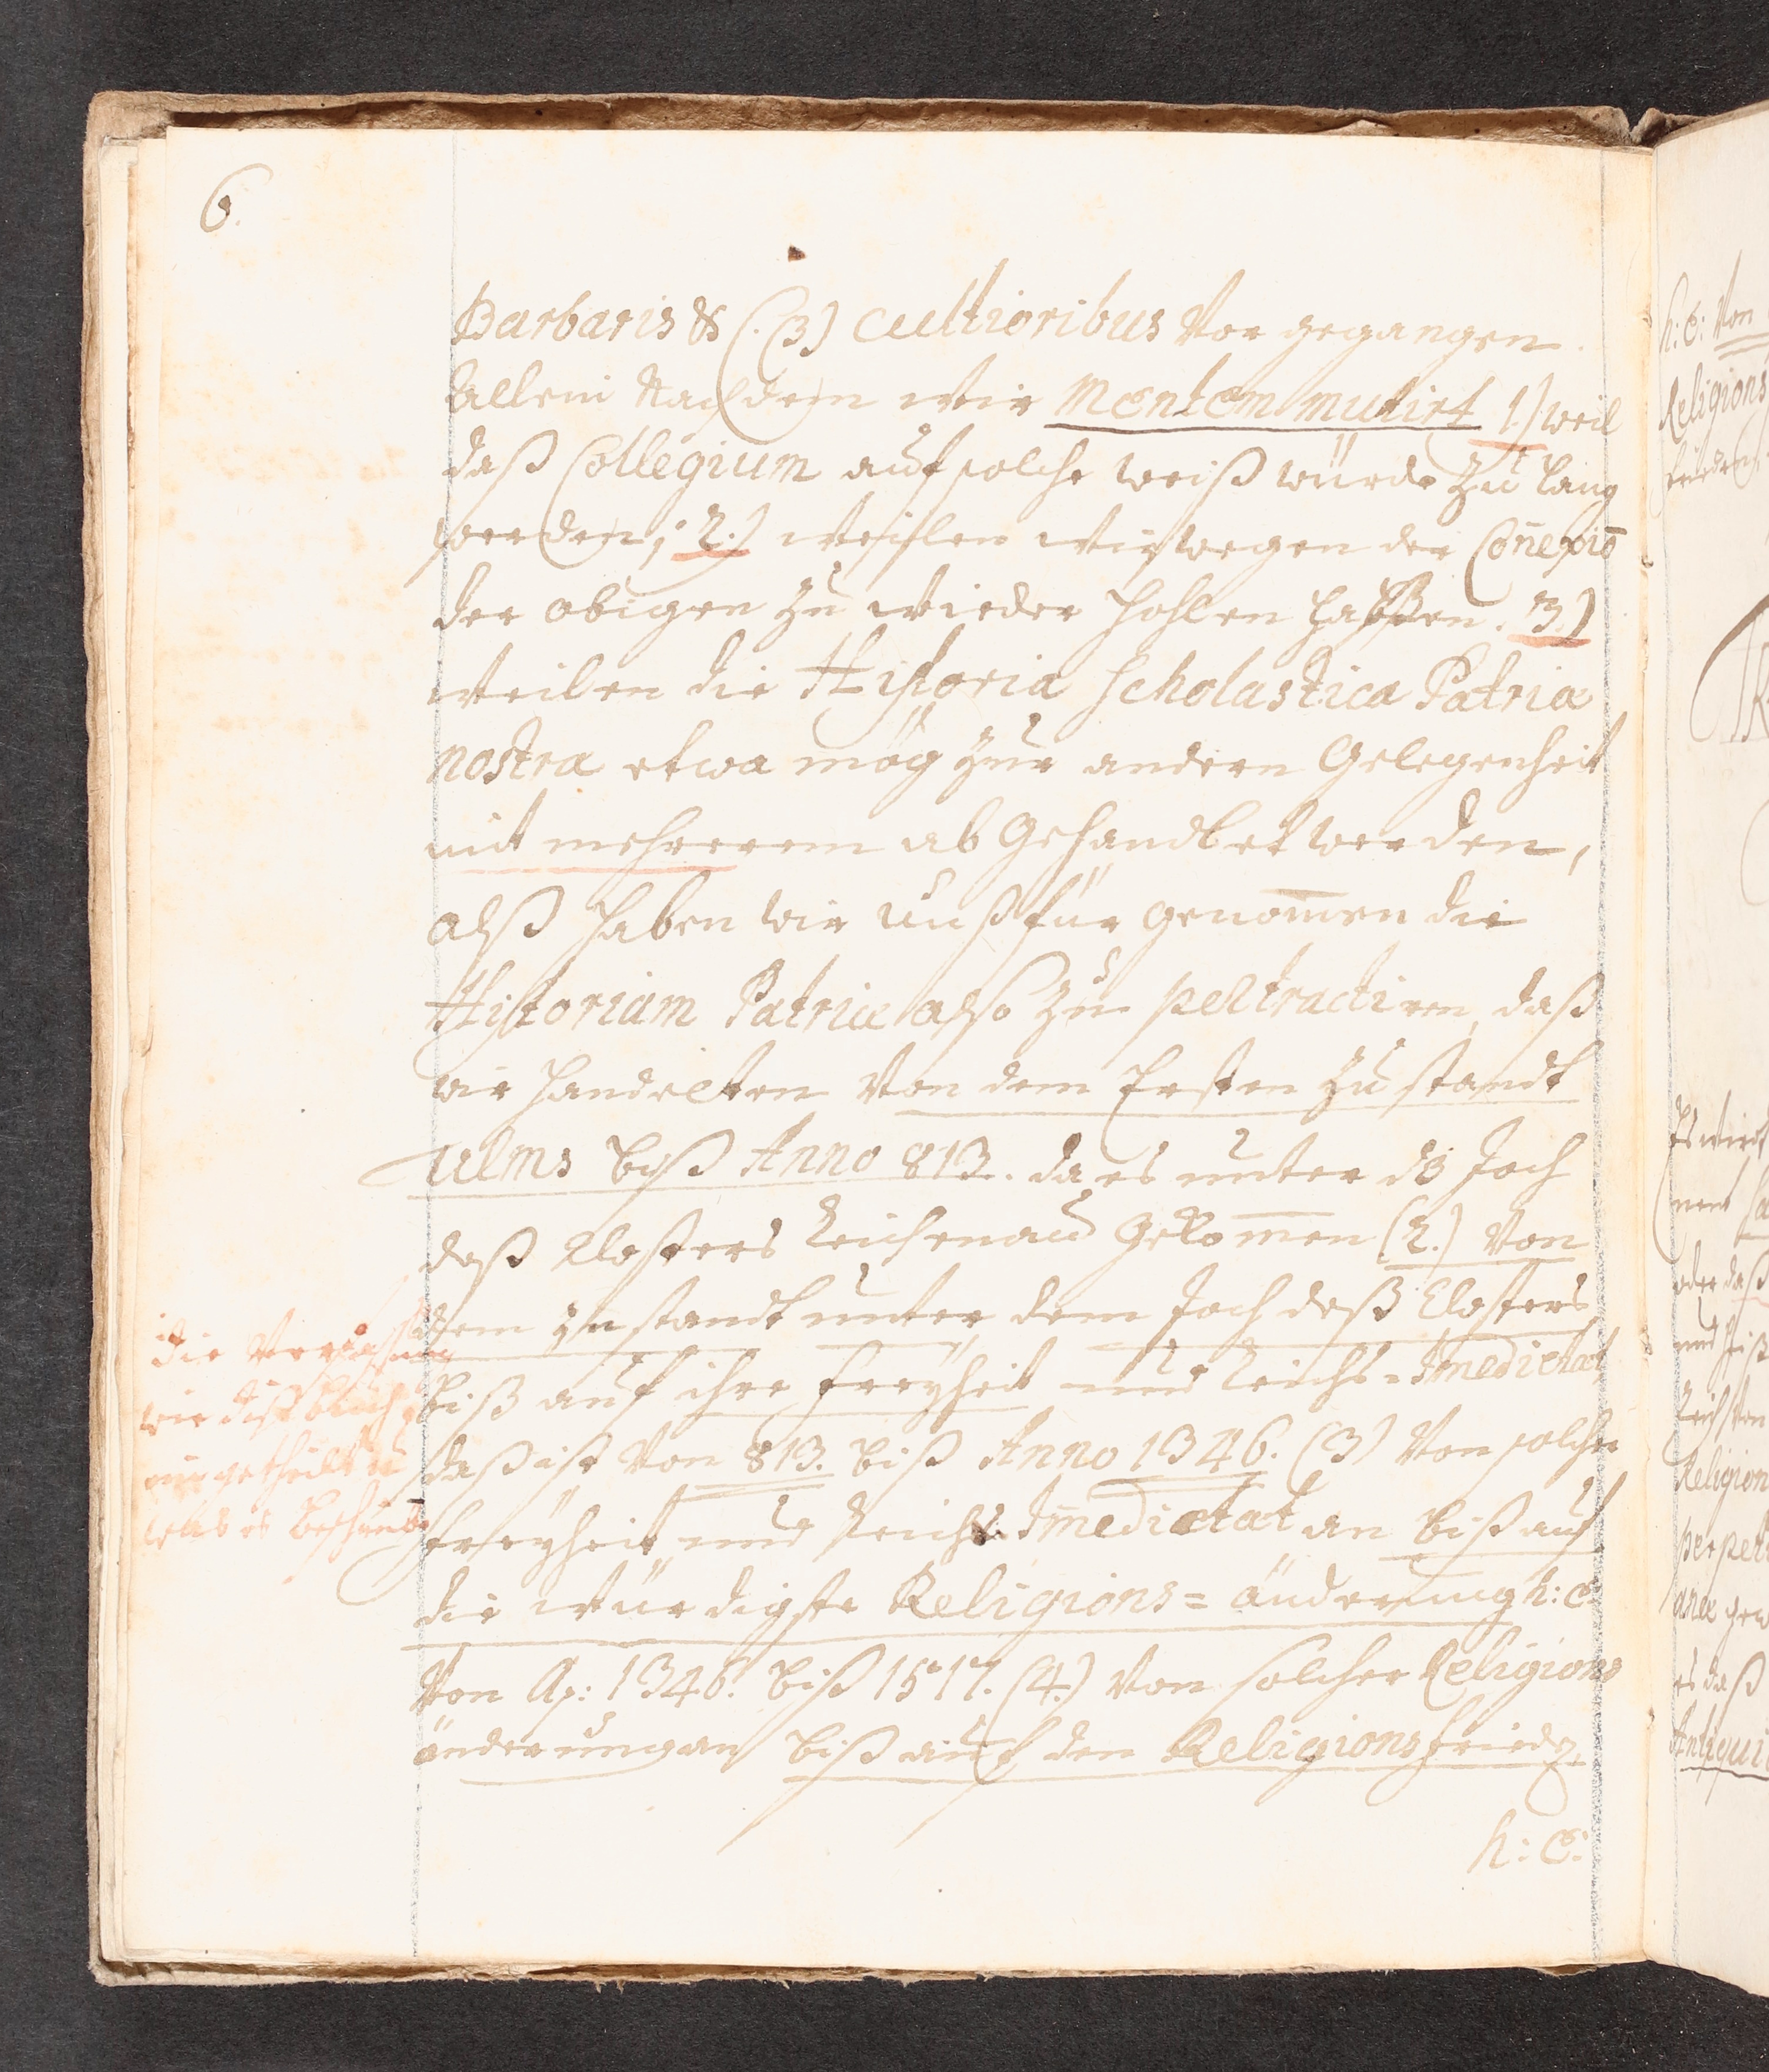 6.
Barbaris & (.(3) cultioribus vor gegangen.
Allein Nachdem wir Mentem mutirt 1.) weil
daß Collegium auf solche weiß würde zu lang
werden; 2.) weilen wir wegen der Coñexiõ
der obigen zu wieder hohlen haben. 3.)
weilen die Historia scholastica Patriæ
nostræ etwa mög zur andern Gelegenheit
mit mehrerem ab Gehandlet werden,
alß haben wir unß für genom̄en die
Historiam Patriæ also zu pertractiren, daß
wir handelten von dem Ersten zu standt
Ulms biß Anno 813. da es unter dz Joch
deß Closters Reichenau Gekom̄en (2.) Von
dem zu standt unter dem Joch deß Closters
biß auf ihre freyheit und Reichs-Im̄edietat
daß ist von 813. biß Anno 1346. (3) Von solcher
freyheit und Reichs Im̄edietat an biß auf
die würdigste Religions = änderung h: e:
Von Ao: 1346. biß 1517. (4.) Von solcher Religions
änderung an biß auf den Religions friedẽ
h: e:
die Verfassung
wie diß buch
eingetheilt u